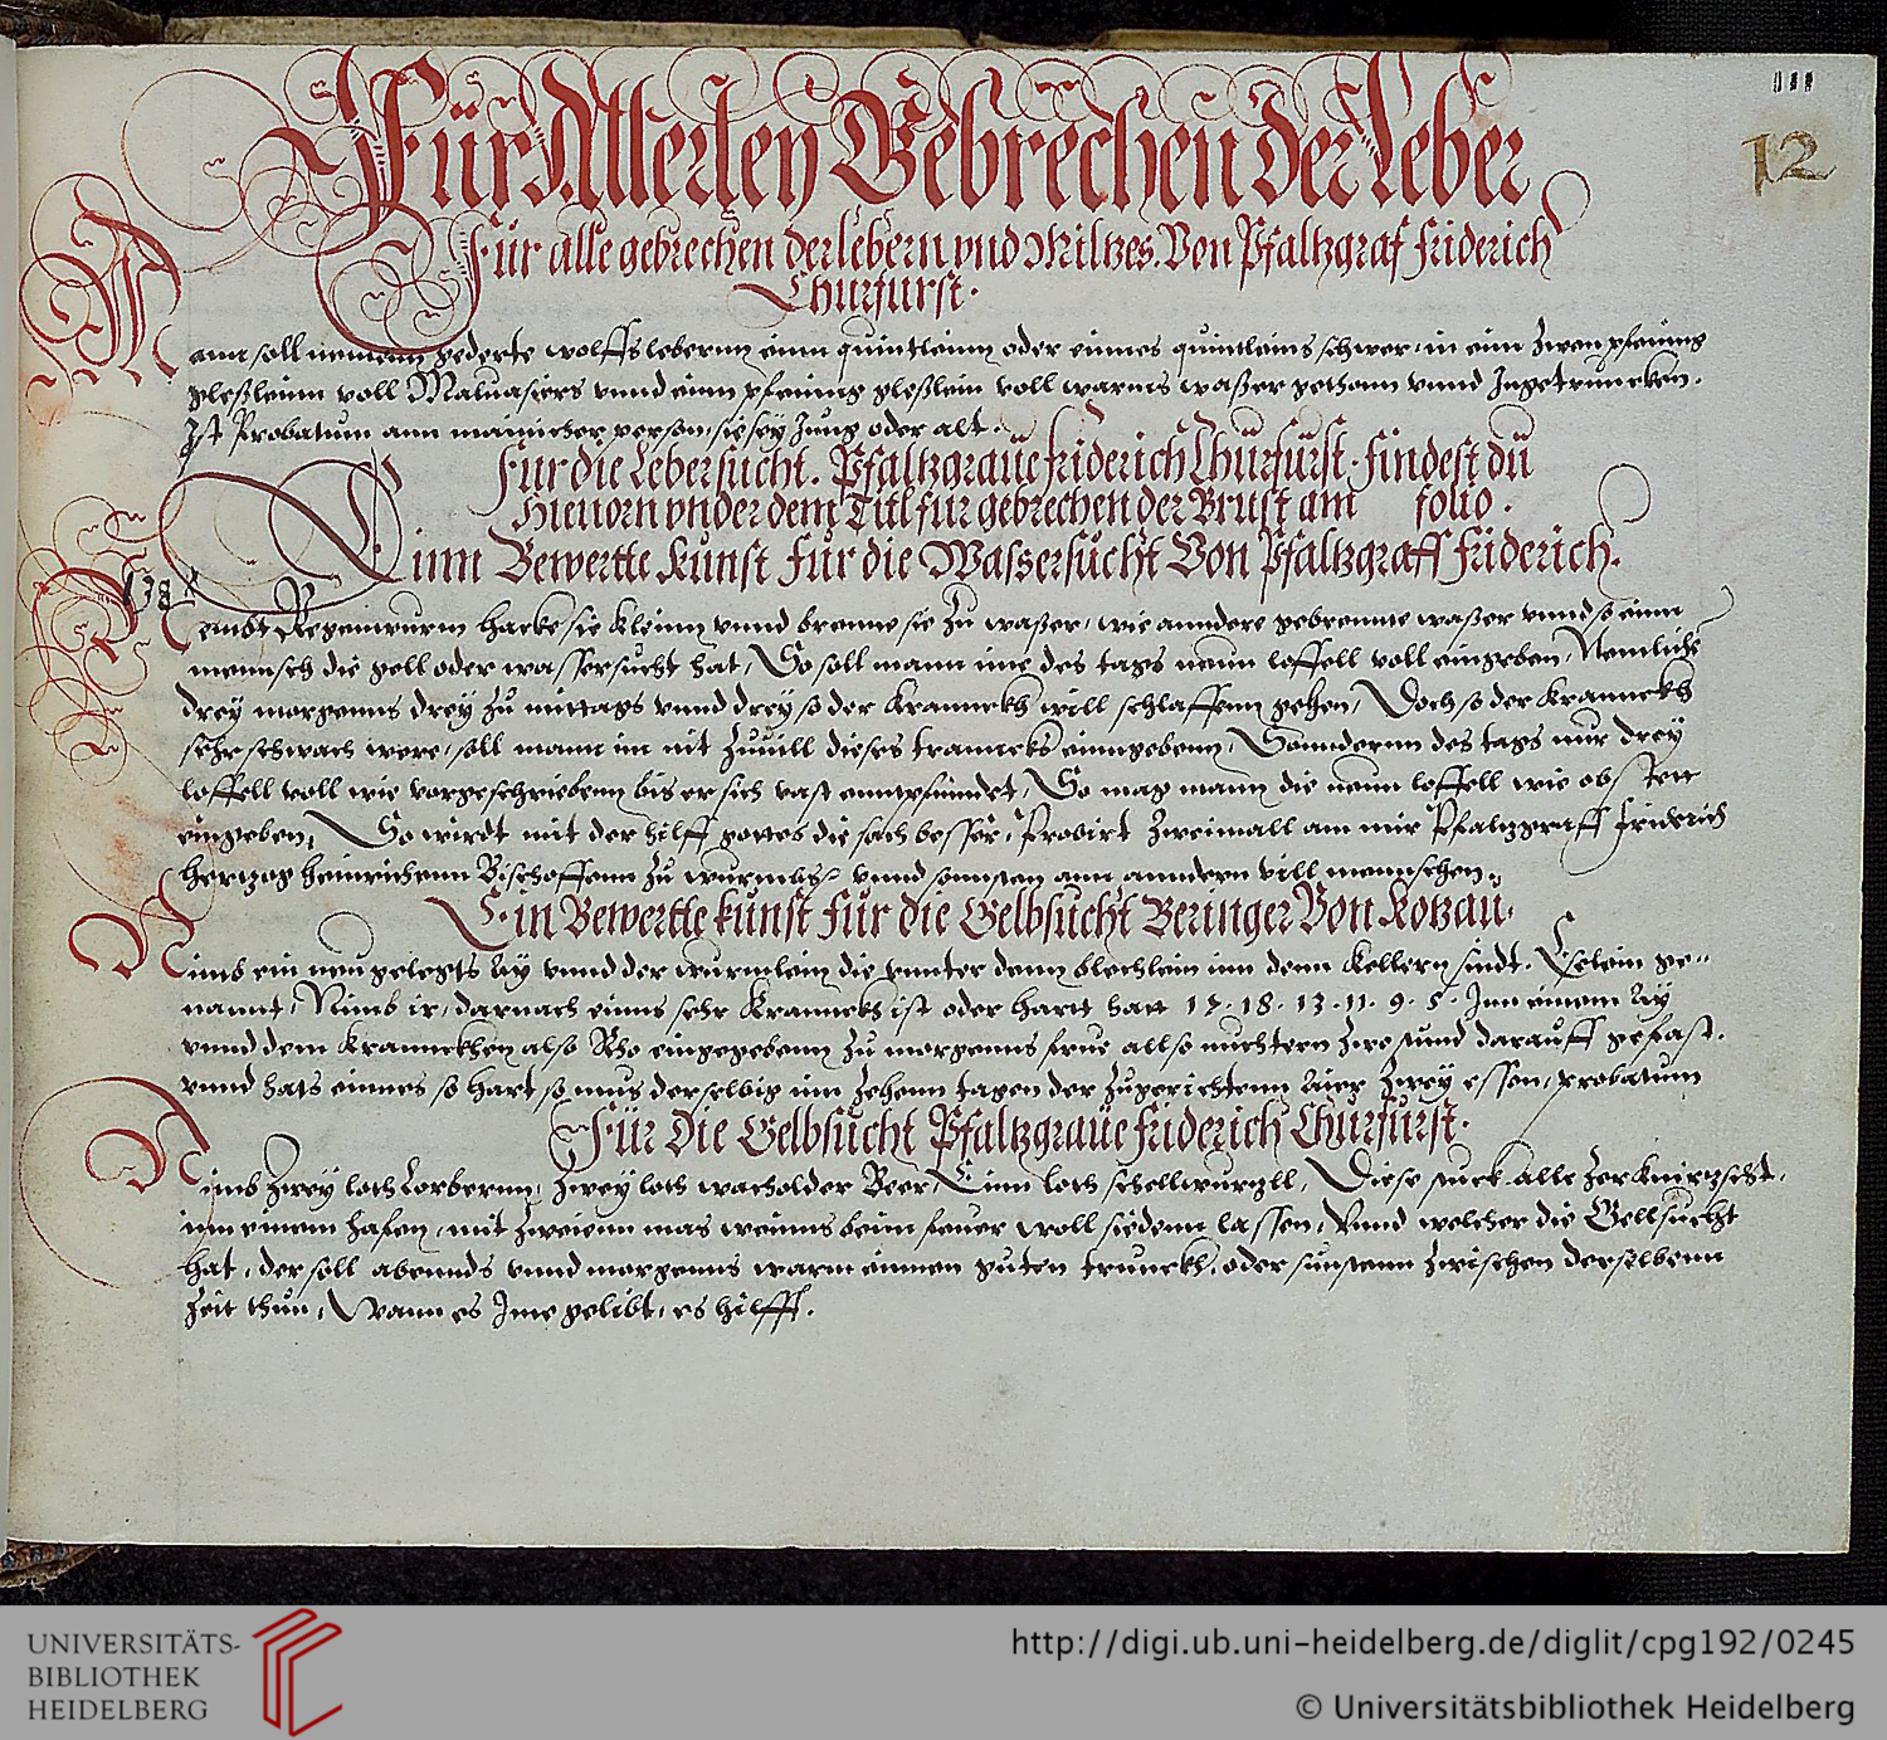 111
12
Für Allerley Gebrechen der Leber
Für alle gebrechen der lebern vnd Miltzes. Von Pfaltzgraf friderich
Churfurst.
Mann soll nemenn gederte wolffslebernn einn quintleinn oder einnes quintleins schwer, in einn Zwen pfening
gleßleinn voll Maluasiers vnnd einn pfening gleßlein voll warms waßer gethonn vnnd Ingetrunckhen.
Ist Probatum ann mainicher person, sie sey Jung oder alt.
Fur die Lebersucht. Pfaltzgraue friderich Churfurst. findest du
Hieuorn vnder dem Titl fur gebrechen der Brust am folio.
Einn Bewertte kunst für die Wassersucht Von Pfaltzgraff friderich.
138
Nembt Regenwurm hacke sie kleinn vnnd brenne sie Zu waßer, wie anndere gebrennte waßer vnnd so einn
mennsch die gell oder wassersucht hat, So soll mann ime des tags neun loffell voll eingeben, Nemlich
drey morgenns drey Zu mittags vnnd drey so der Kranneckh will schlaffenn gehen, Doch so der Kranneckh
sehr schwach were, soll mann im nit Zuuill dieses tranncks einngebenn, Sonndernn des tags nur drey
loffell voll wie vorgeschriebenn bis er sich vast enntpfindet, So mag mann die neun loffell wie obstett
eingeben, So wirdt mit der hilff gottes die sach besser, Probirt Zweimall am mir Pfaltzgraff friderich
Hertzog Heinrichenn Bischoffenn Zu wurmbs vnnd sonnsten ann anndern vill mennschen.
Ein Bewertte kunst für die Gelbsucht Beringer Von Kotzau.
Nimb ein neugelegts Ay vnnd der wurmlein die vnnter denn blechlein inn denn Kellern sindt. Eselein ge-
nannt, Nimb ir, darnach einns sehr Kranneckh ist oder hartt hatt 17. 18. 13. 11. 9. 5. Inn einem Ay
vnnd dem Kranneckhen also Rho eingegebenn Zu morgenns frue allso nuchtern Zwo stund darauff gefast.
vnnd hats einnes so hart so mus derselbig inn Zehenn tagen der Zugerichtenn Aier Zwey essen, probatum
Für Die Gelbsucht Pfaltzgraue friderich Churfurst.
Nimb Zwey loth Lorbernn, Zwey loth wacholder Beer, Einn loth schellwurtzll, Diese stuck alle Zerknirzscht,
inn einem hafen, mit Zweienn mas weinns beim feuer woll siedenn lassen, Vnnd welcher die Gellsucht
hat, der soll abennds vnnd morgenns warm einnen guten trunckh, oder sunstenn Zwischen derselbenn
Zeit thun, Wann es Ime gelibt, es hilfft.
UNIVERSITÄTS-
BIBLIOTHEK
HEIDELBERG
http://digi.ub.uni-heidelberg.de/diglit/cpg192/0245
© Universitätsbibliothek Heidelberg